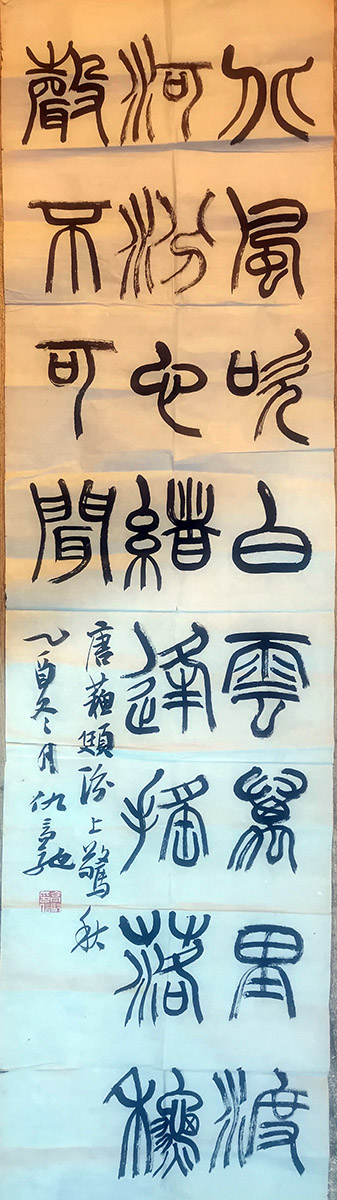 北風吹白雲萬里渡
河汾心緒逢搖落龝
聲不可聞
唐蘓頲汾上驚秋
乙酉冬月仇高馳